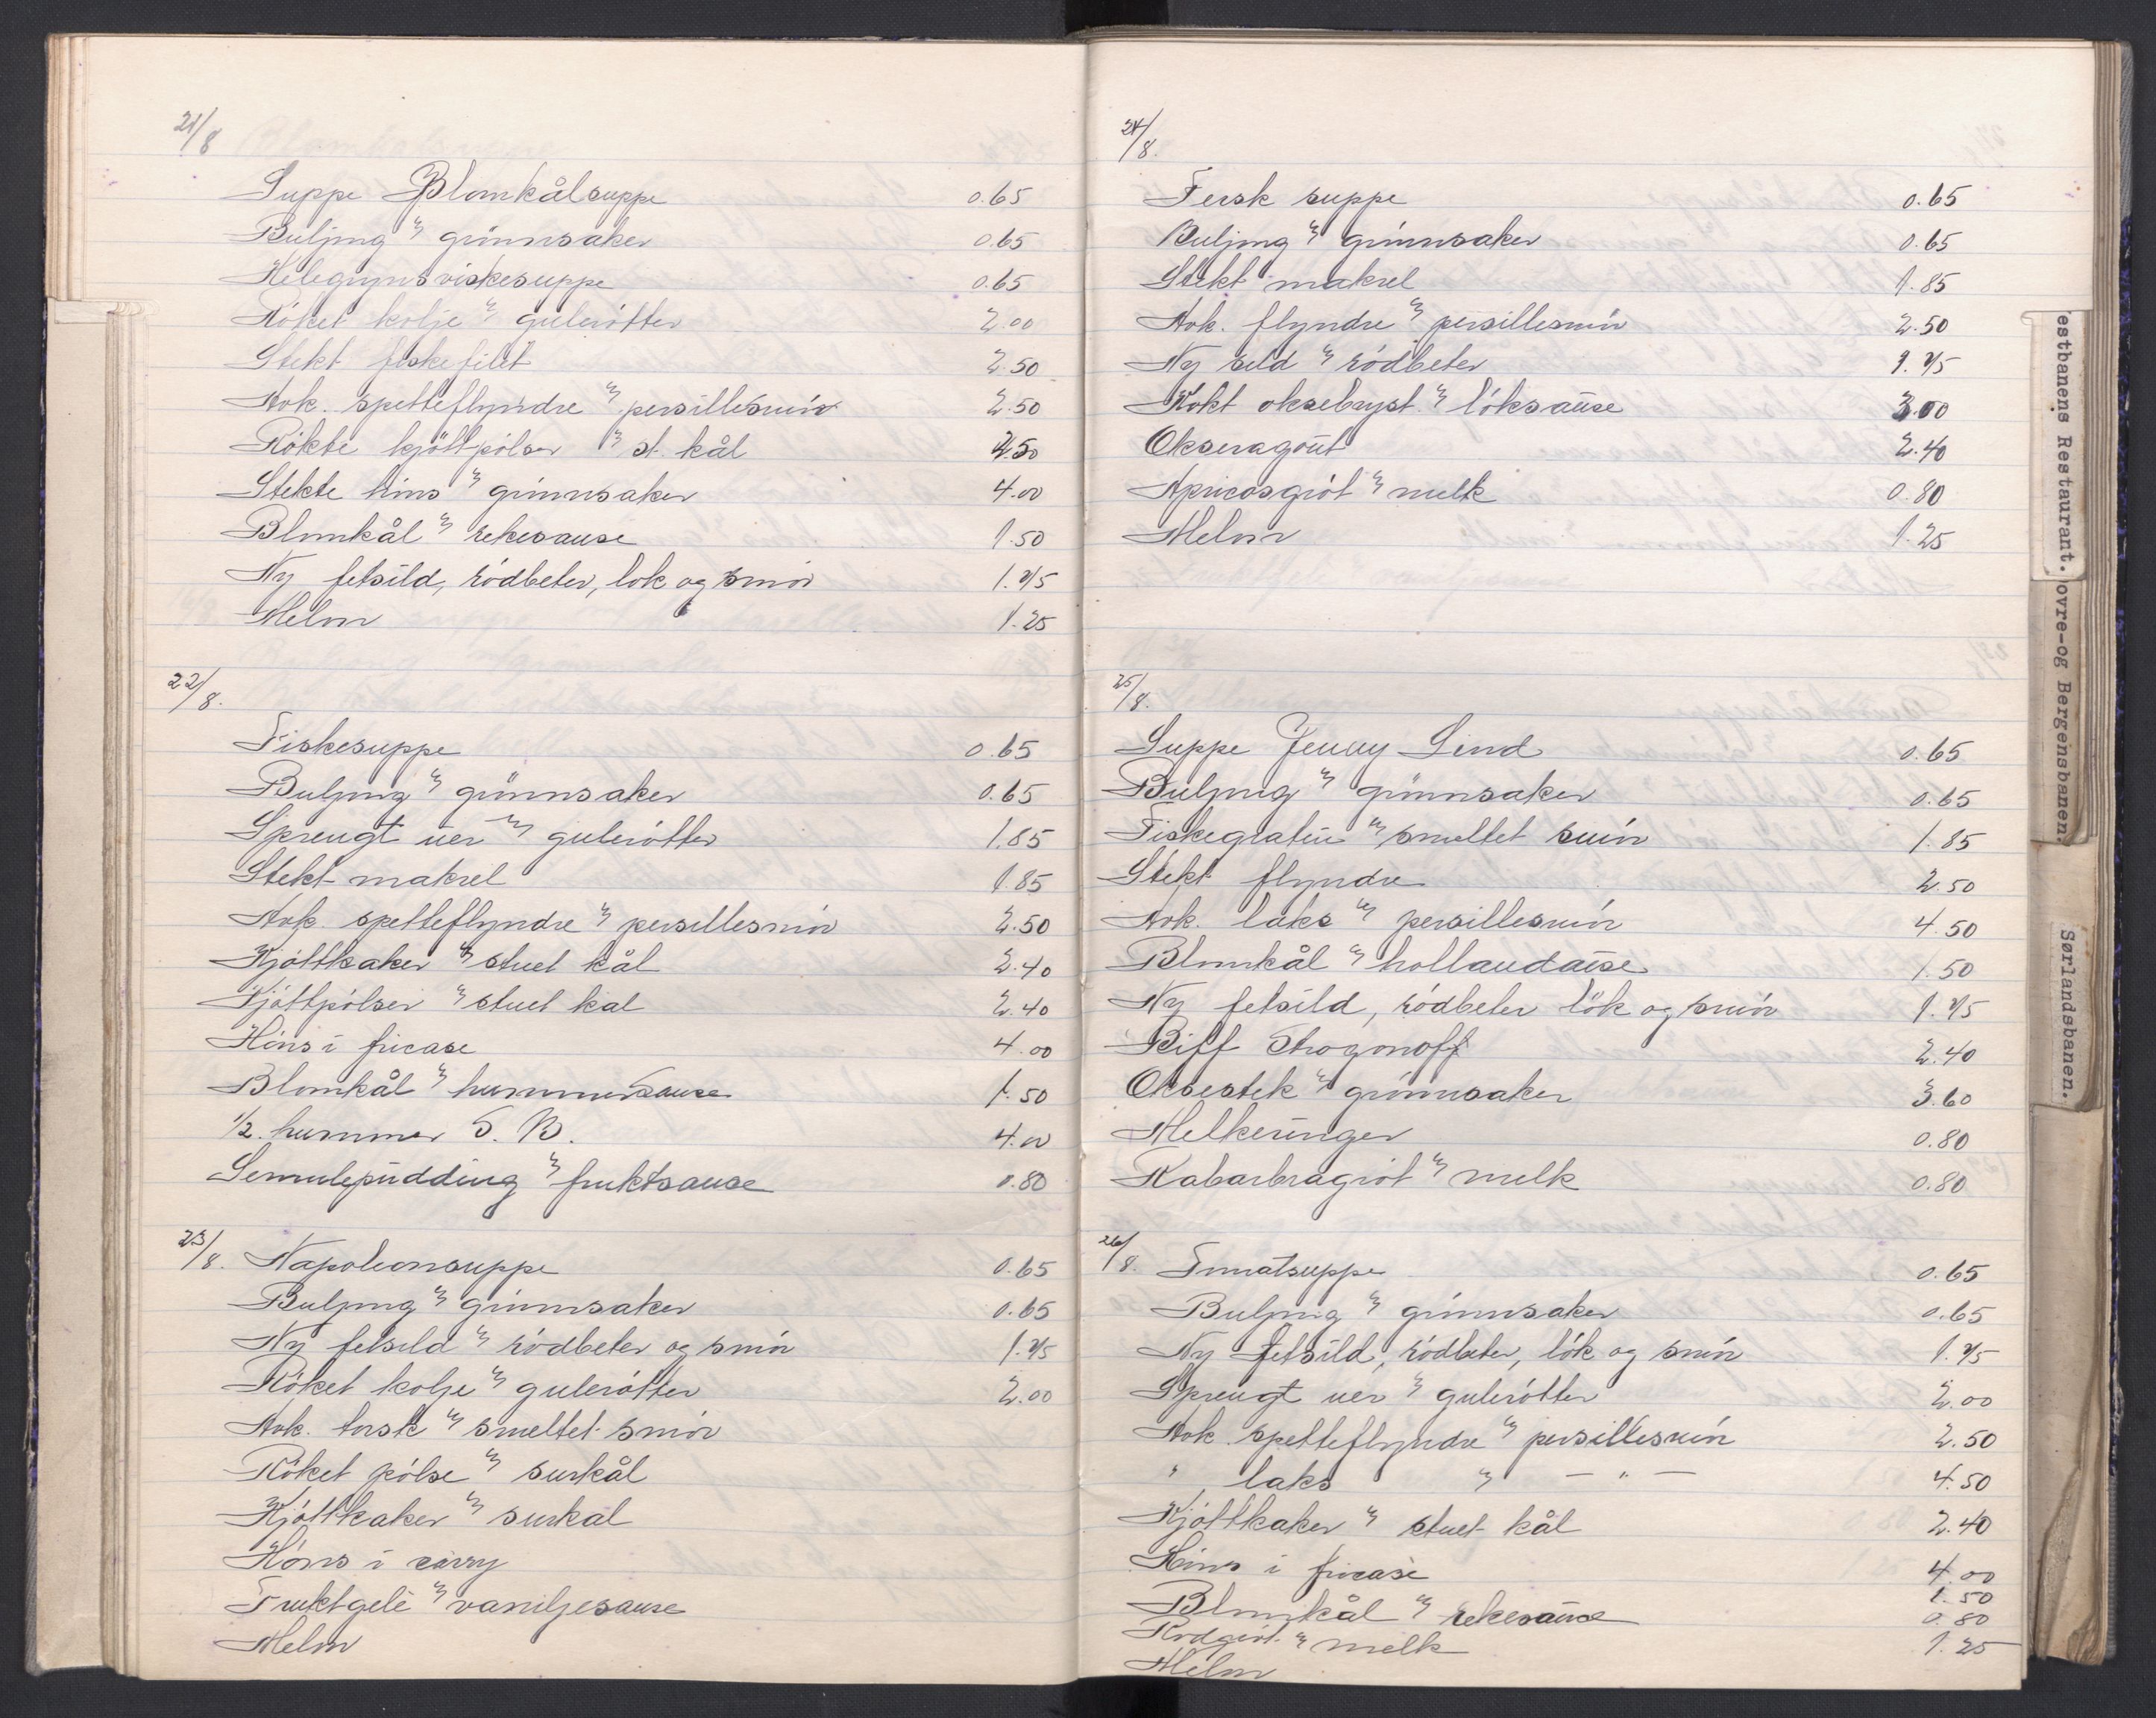 21/8
Suppe Blomkålsuppe 0.65
Buljong m/ grönnsaker 0.65
Helegryns viskesuppe 0.65
Röket kolje m/ gulerötter 2.00
Stekt fiskefilet 2.50
Avk. spetteflyndre m/ persillesmör 2.50
Rökte kjöttpölser m/ st. kål 2.50
Stekte höns m/ grönnsaker 4.00
Blomkål m/ rekesause 1.50
Ny fetsild, rödbeter, lok og smör 1.75
Melon 1.25
22/8.
Fiskesuppe 0.65
Buljong m/ grönnsaker 0.65
Sprengt uer m/ gulerötter 1.85
Stekt makrel 1.85
Avk. spetteflyndre m/ persillesmör 2.50
Kjöttkaker m/ stuet kål 2.40
Kjöttpölser m/ stuet kal 2.40
Höns i fricase 4.00
Blomkål m/ hummersause 1.50
1/2. hummer S. B. 4.00
Semulepudding m/ fruktsause 0.80
23/8. Napoleonsuppe 0.65
Buljong m/ grönnsaker 0.65
Ny fetsild m/ rödbeter og smör 1.75
Röket kolje m/ gulerötter 2.00
Avk. torsk m/ smeltet smör
Röket pölse m/ surkål
Kjöttkaker m/ surkal
Höns i carry
Fruktgelé m/ vaniljesause
Melon
24/8.
Fersk suppe 0.65
Buljong m/ grönnsaker 0.65
Stekt makrel 1.85
Avk. flyndre m/ persillesmör 2.50
Ny sild m/ rödbeter 1.75
Kokt oksebryst m/ löksause 3.00
Okseragout 2.40
Apricosgröt m/ melk 0.80
Melon 1.25
25/8.
Suppe Jenny Lind 0.65
Buljong m/ grönnsaker 0.65
Fiskegratin m/ smeltet smör 1.85
Stekt flyndre 2.50
Avk. laks m/ persillesmör 4.50
Blomkål m/ hollandaise 1.50
Ny fetsild, rödbeter lök og smör 1.75
Biff Strogonoff 2.40
Oksestek m/ grönnsaker 3.60
Melkeringer 0.80
Rabarbragröt m/ melk 0.80
26/8. Tomatsuppe 0.65
Buljong m/ grönnsaker 0.65
Ny fetsild, rödbeter, lök og smör 1.75
Sprengt uer m/ gulerötter 2.00
Avk. spetteflyndre m/ persillesmör 2.50
" laks m/ — " — 4.50
Kjöttkaker m/ stuet kål 2.40
Höns i fricasé 4.00
Blomkål m/ rekesause 1.50
Rødgröt m/ melk 0.80
Melon 1.25
estbanens Restaurant.
ovre-og Bergensbanen.
Sørlandsbanen.